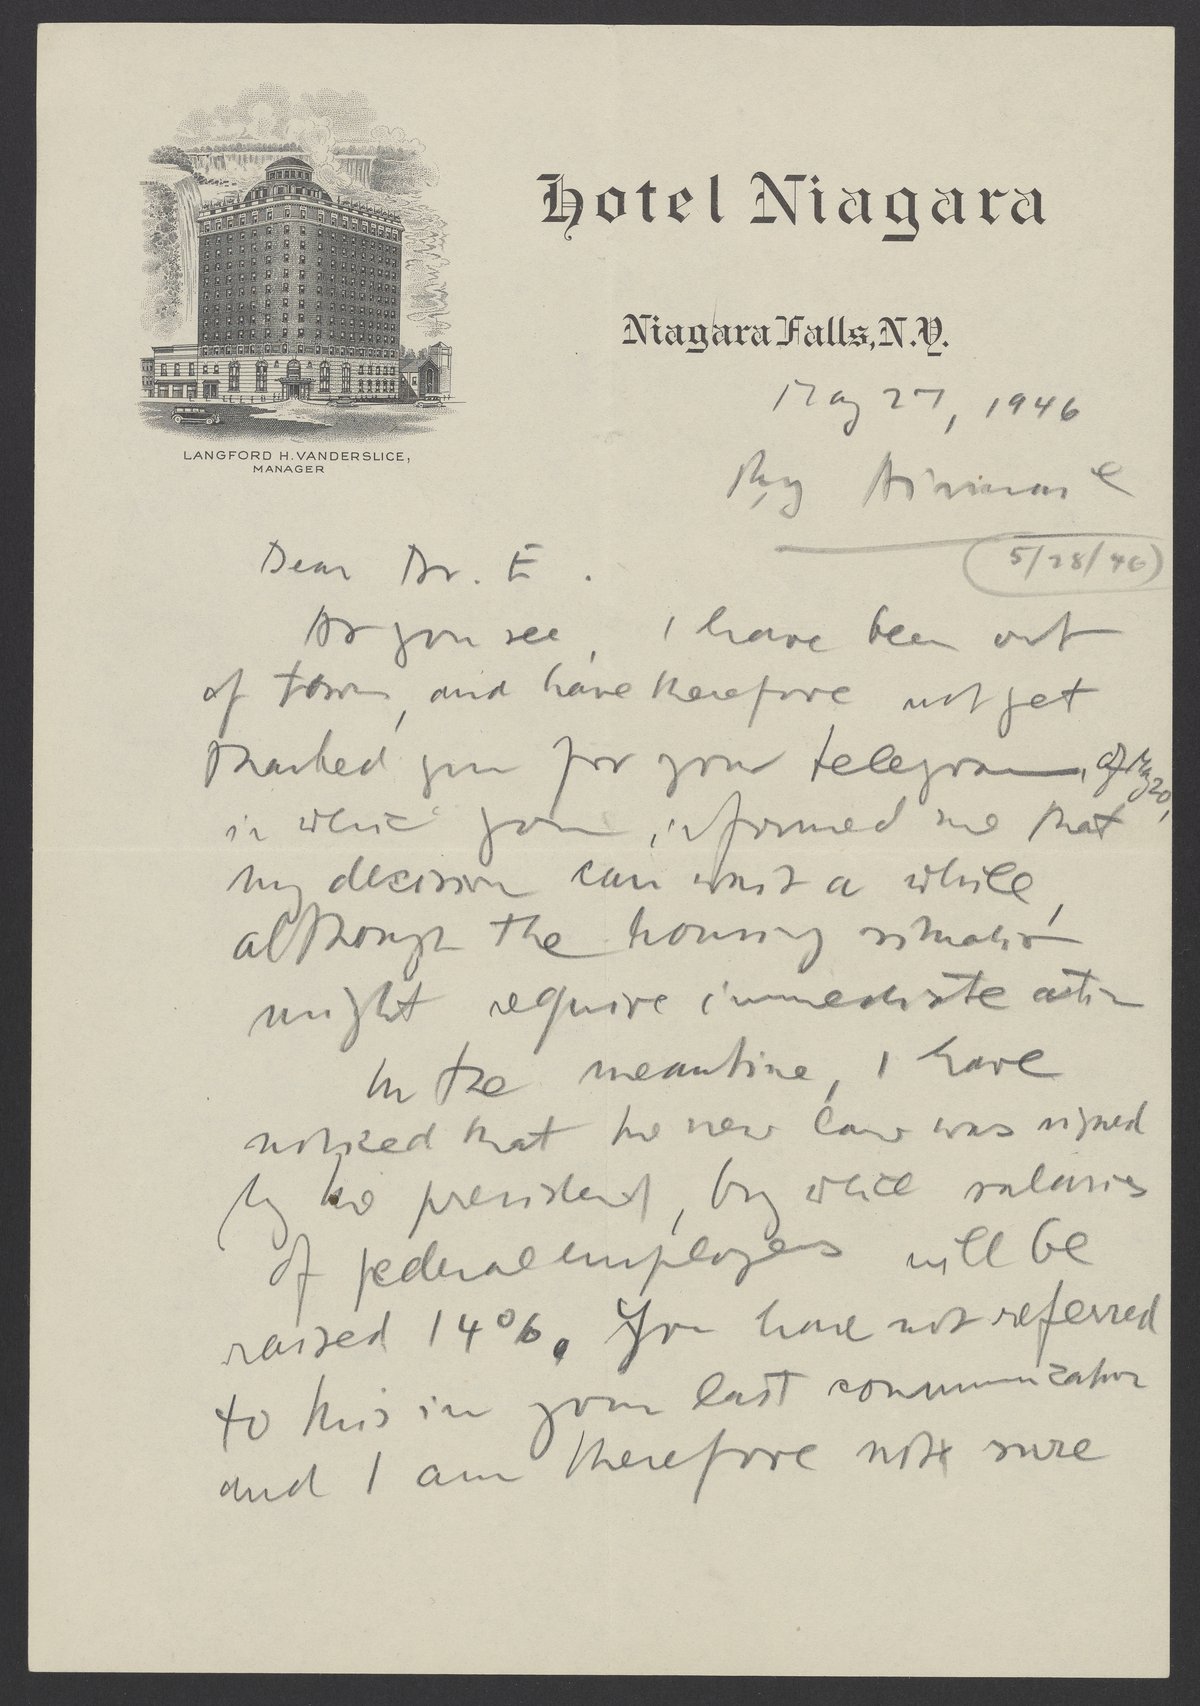 Hotel Niagara
Niagara Falls, N.Y.
LANGFORD H. VANDERSLICE,
MANAGER
May 27, 1946
By Airmail
5/28/46
Dear Dr. E.
As you see, I have been out
of town, and have therefore not yet
thanked you for your telegram, of May 20,
in which you informed me that
my decision can wait a while,
although the housing situation
might require immediate action
In the meantime, I have
noticed that the new law was signed
by the president, by which salaries
of federal employees will be
raised 14%. You have not referred
to this in your last communication
and I am therefore not sure